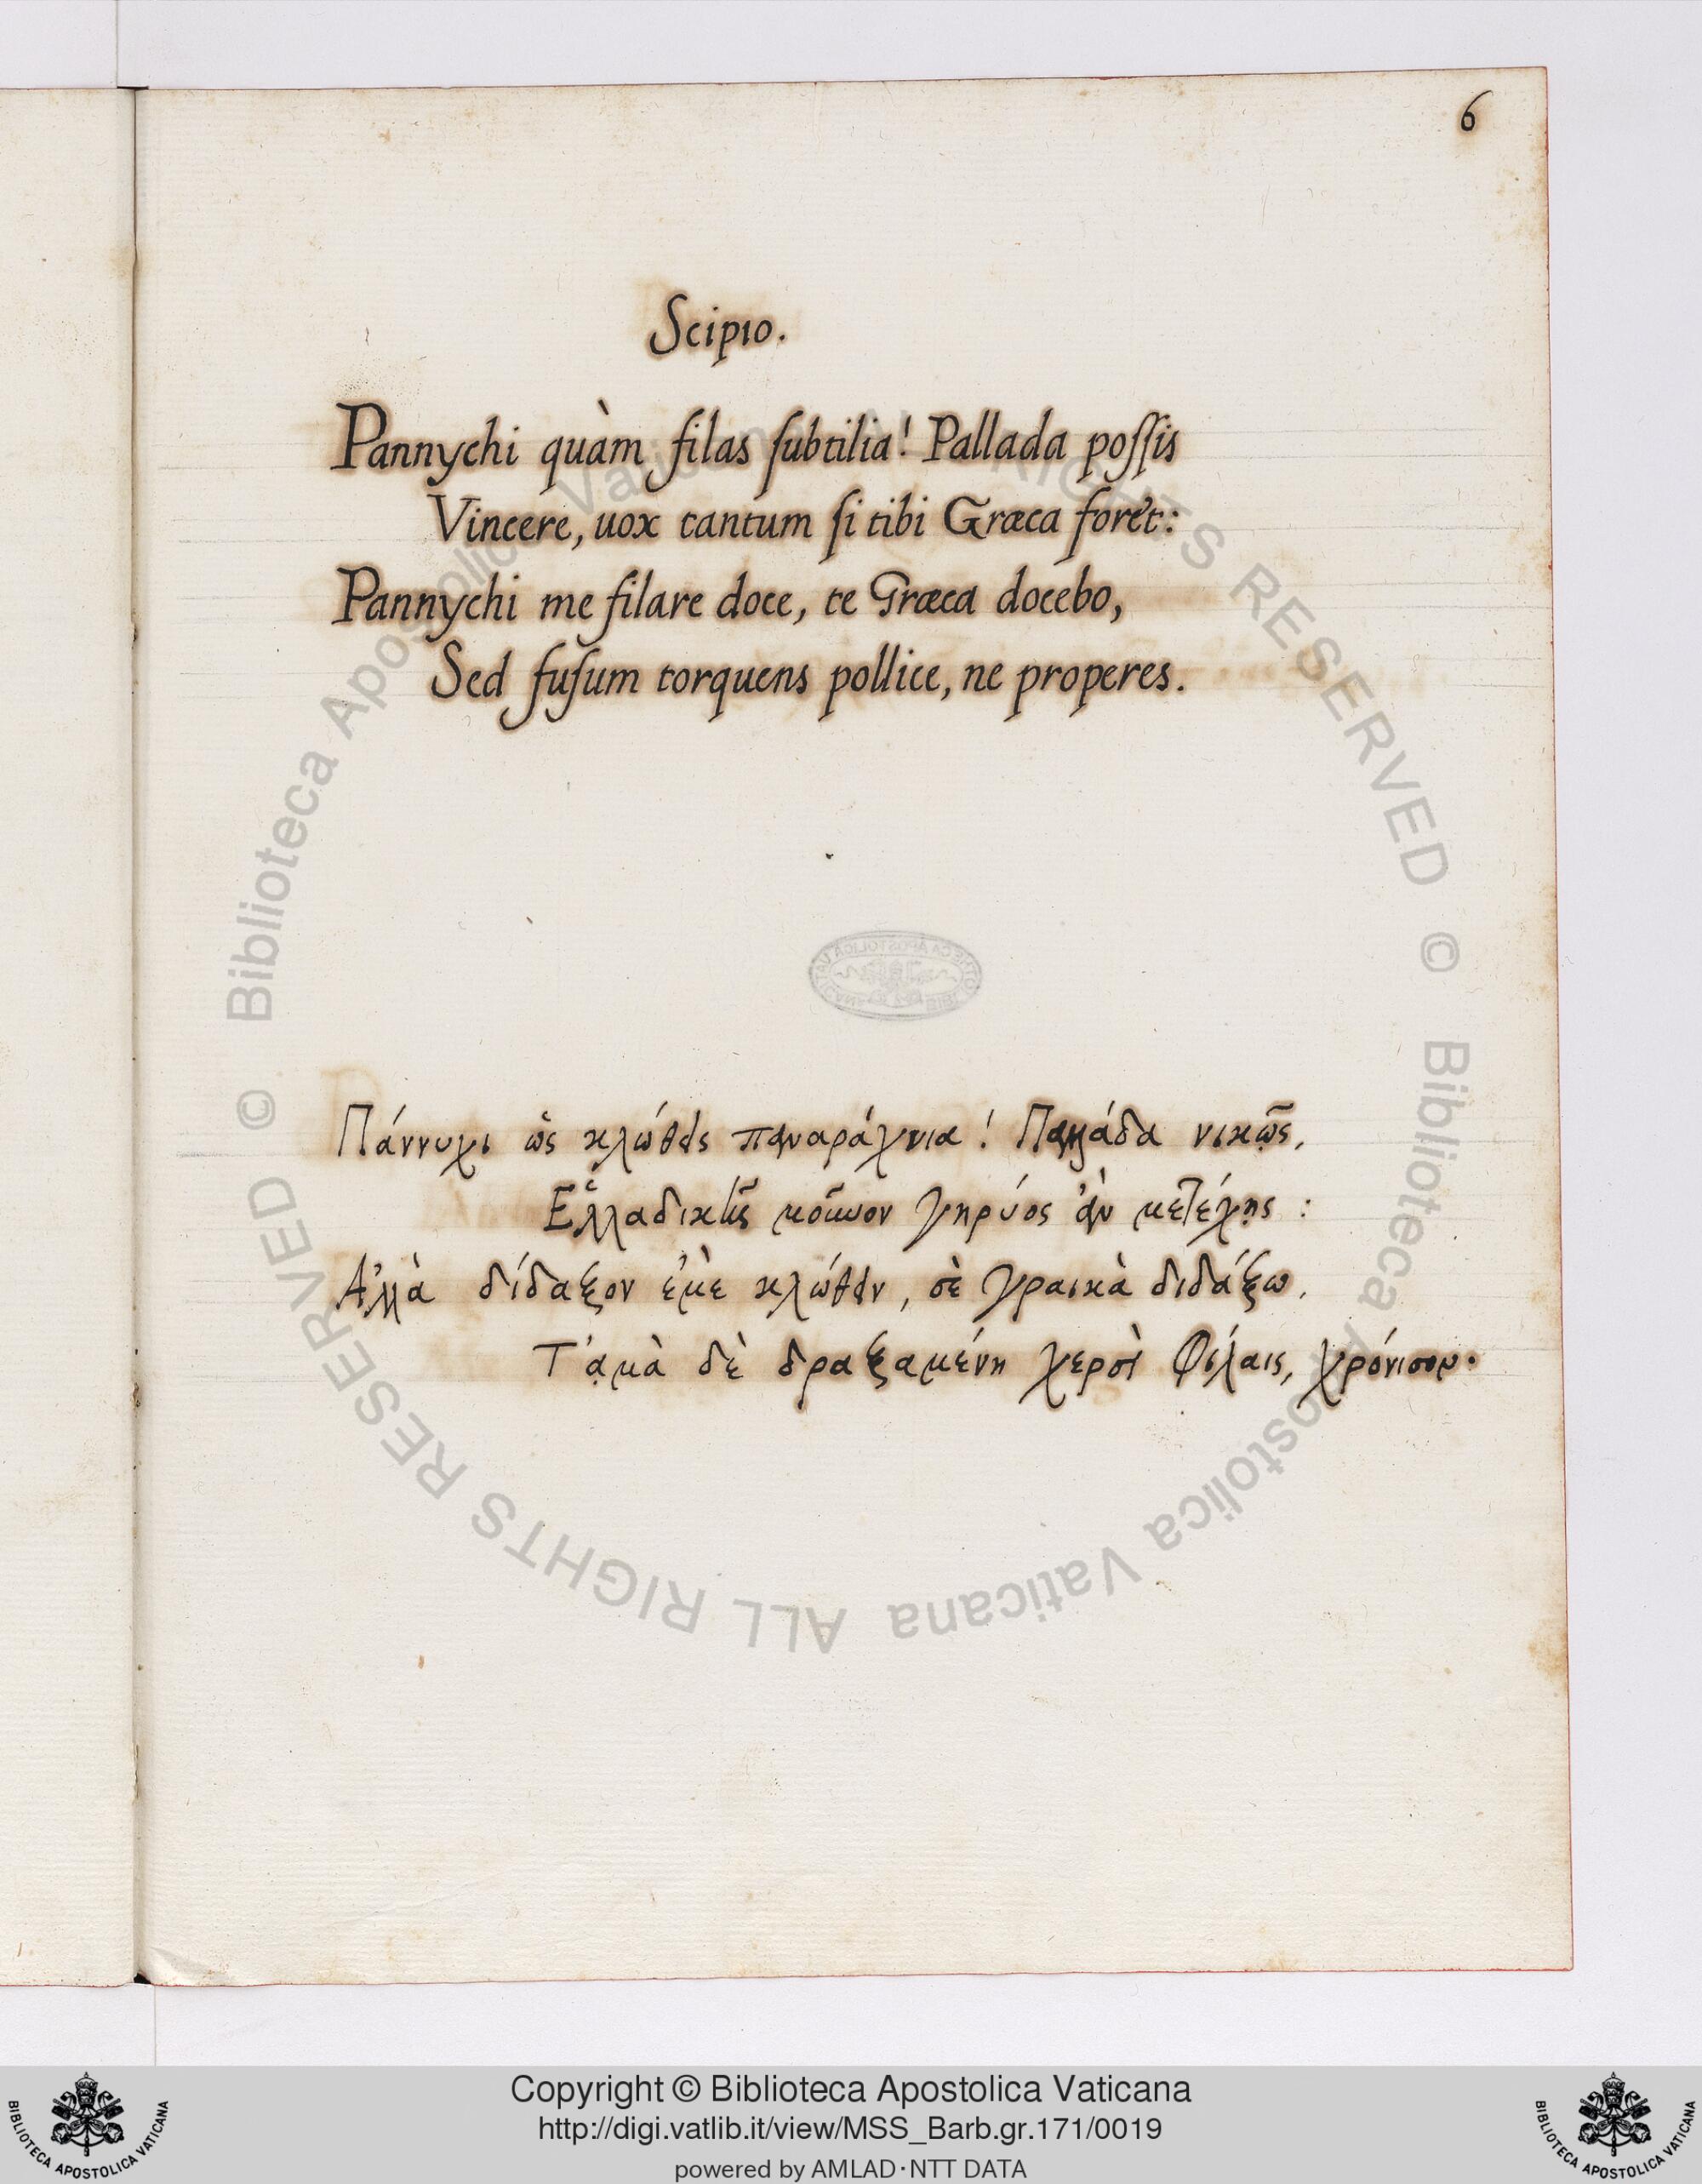 6
Scipio.
Pannychi quàm filas ſubtilia! Pallada poſſis
Vincere, uox tantum ſi tibi Græca foret:
Pannychi me filare doce, te Græca docebo,
Sed fuſum torquens pollice, ne properes.
Πάννυχι ὡς κλώθεις παναράχνια! Παλλάδα νικῴης,
Ἑλλαδικῆς μοῦνον γηρύος ἂν μετέχῃς:
Ἀλλὰ δίδαξον ἐμὲ κλώθειν, σὲ γραικὰ διδάξω,
δὲ δραξαμένη χερσὶ φίλαις, χρόνισον.
© Biblioteca Apostolica Vaticana ALL RIGHTS RESERVED
© Biblioteca Apostolica Vaticana ALL RIGHTS RESERVED
Copyright © Biblioteca Apostolica Vaticana
http://digi.vatlib.it/view/MSS_Barb.gr.171/0019
powered by AMLAD·NTT DATA
BIBLIOTECA APOSTOLICA VATICANA
BIBLIOTECA APOSTOLICA VATICANA